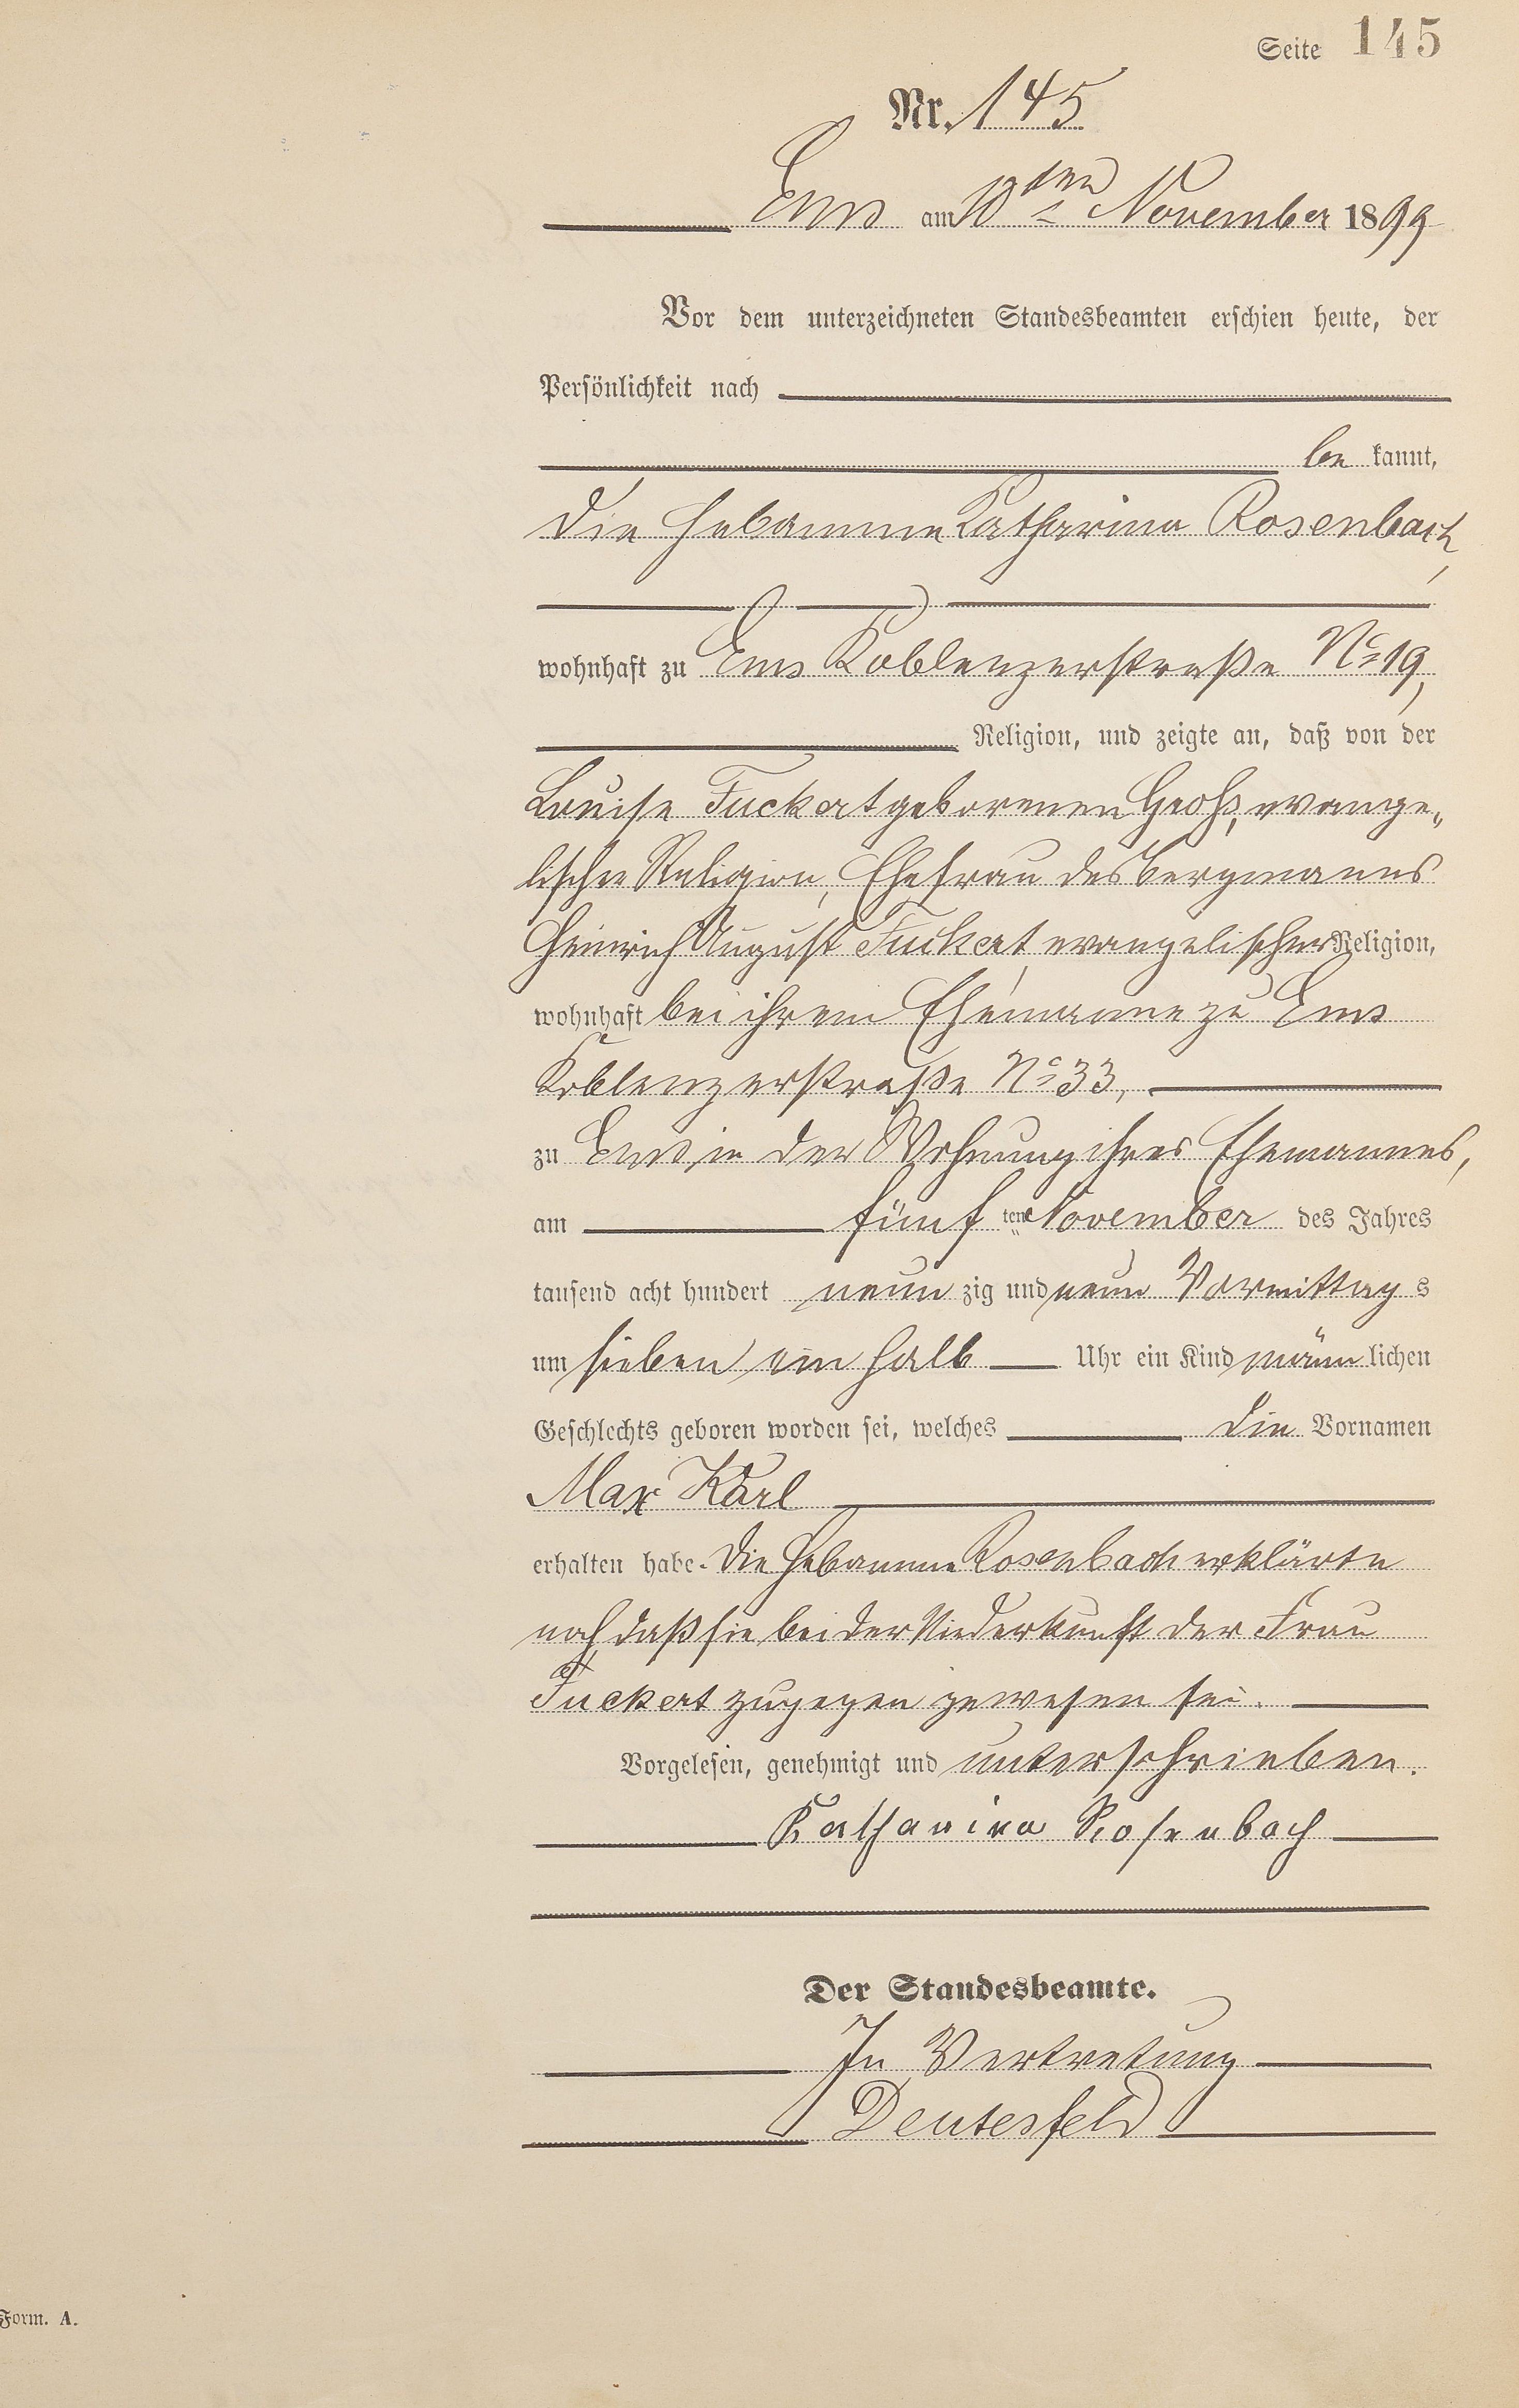 Seite 145
Nr. 145
Ems am 10ten November 1899
Vor dem unterzeichneten Standesbeamten erschien heute, der
Persönlichkeit nach
be kannt,
die Hebamme Katharina Rosenbach,
wohnhaft zu Ems Koblenzerstraße No 19,
Religion, und zeigte an, daß von der
Louise Fuckert geborenen Groß, evange„
lischer Religion, Ehefrau des Bergmanns
Heinrich August Fuckert, evangelischer Religion,
wohnhaft bei ihrem Ehemanne zu Ems
Koblenzerstraße No 33,
zu Ems, in der Wohnung ihres Ehemannes,
am fünf ten November des Jahres
tausend acht hundert neun zig und neun Vormittag s
um sieben ein halb Uhr ein Kind männ lichen
Geschlechts geboren worden sei, welches die Vornamen
Max Karl
erhalten habe. Die Hebamme Rosenbach erklärte
noch, daß sie bei der Niederkunft der Frau
Fuckert zugegen gewesen sei.
Vorgelesen, genehmigt und unterschrieben.
Katharina Rosenbach
Der Standesbeamte.
In Vertretung
Deutesfeld
Form. A.